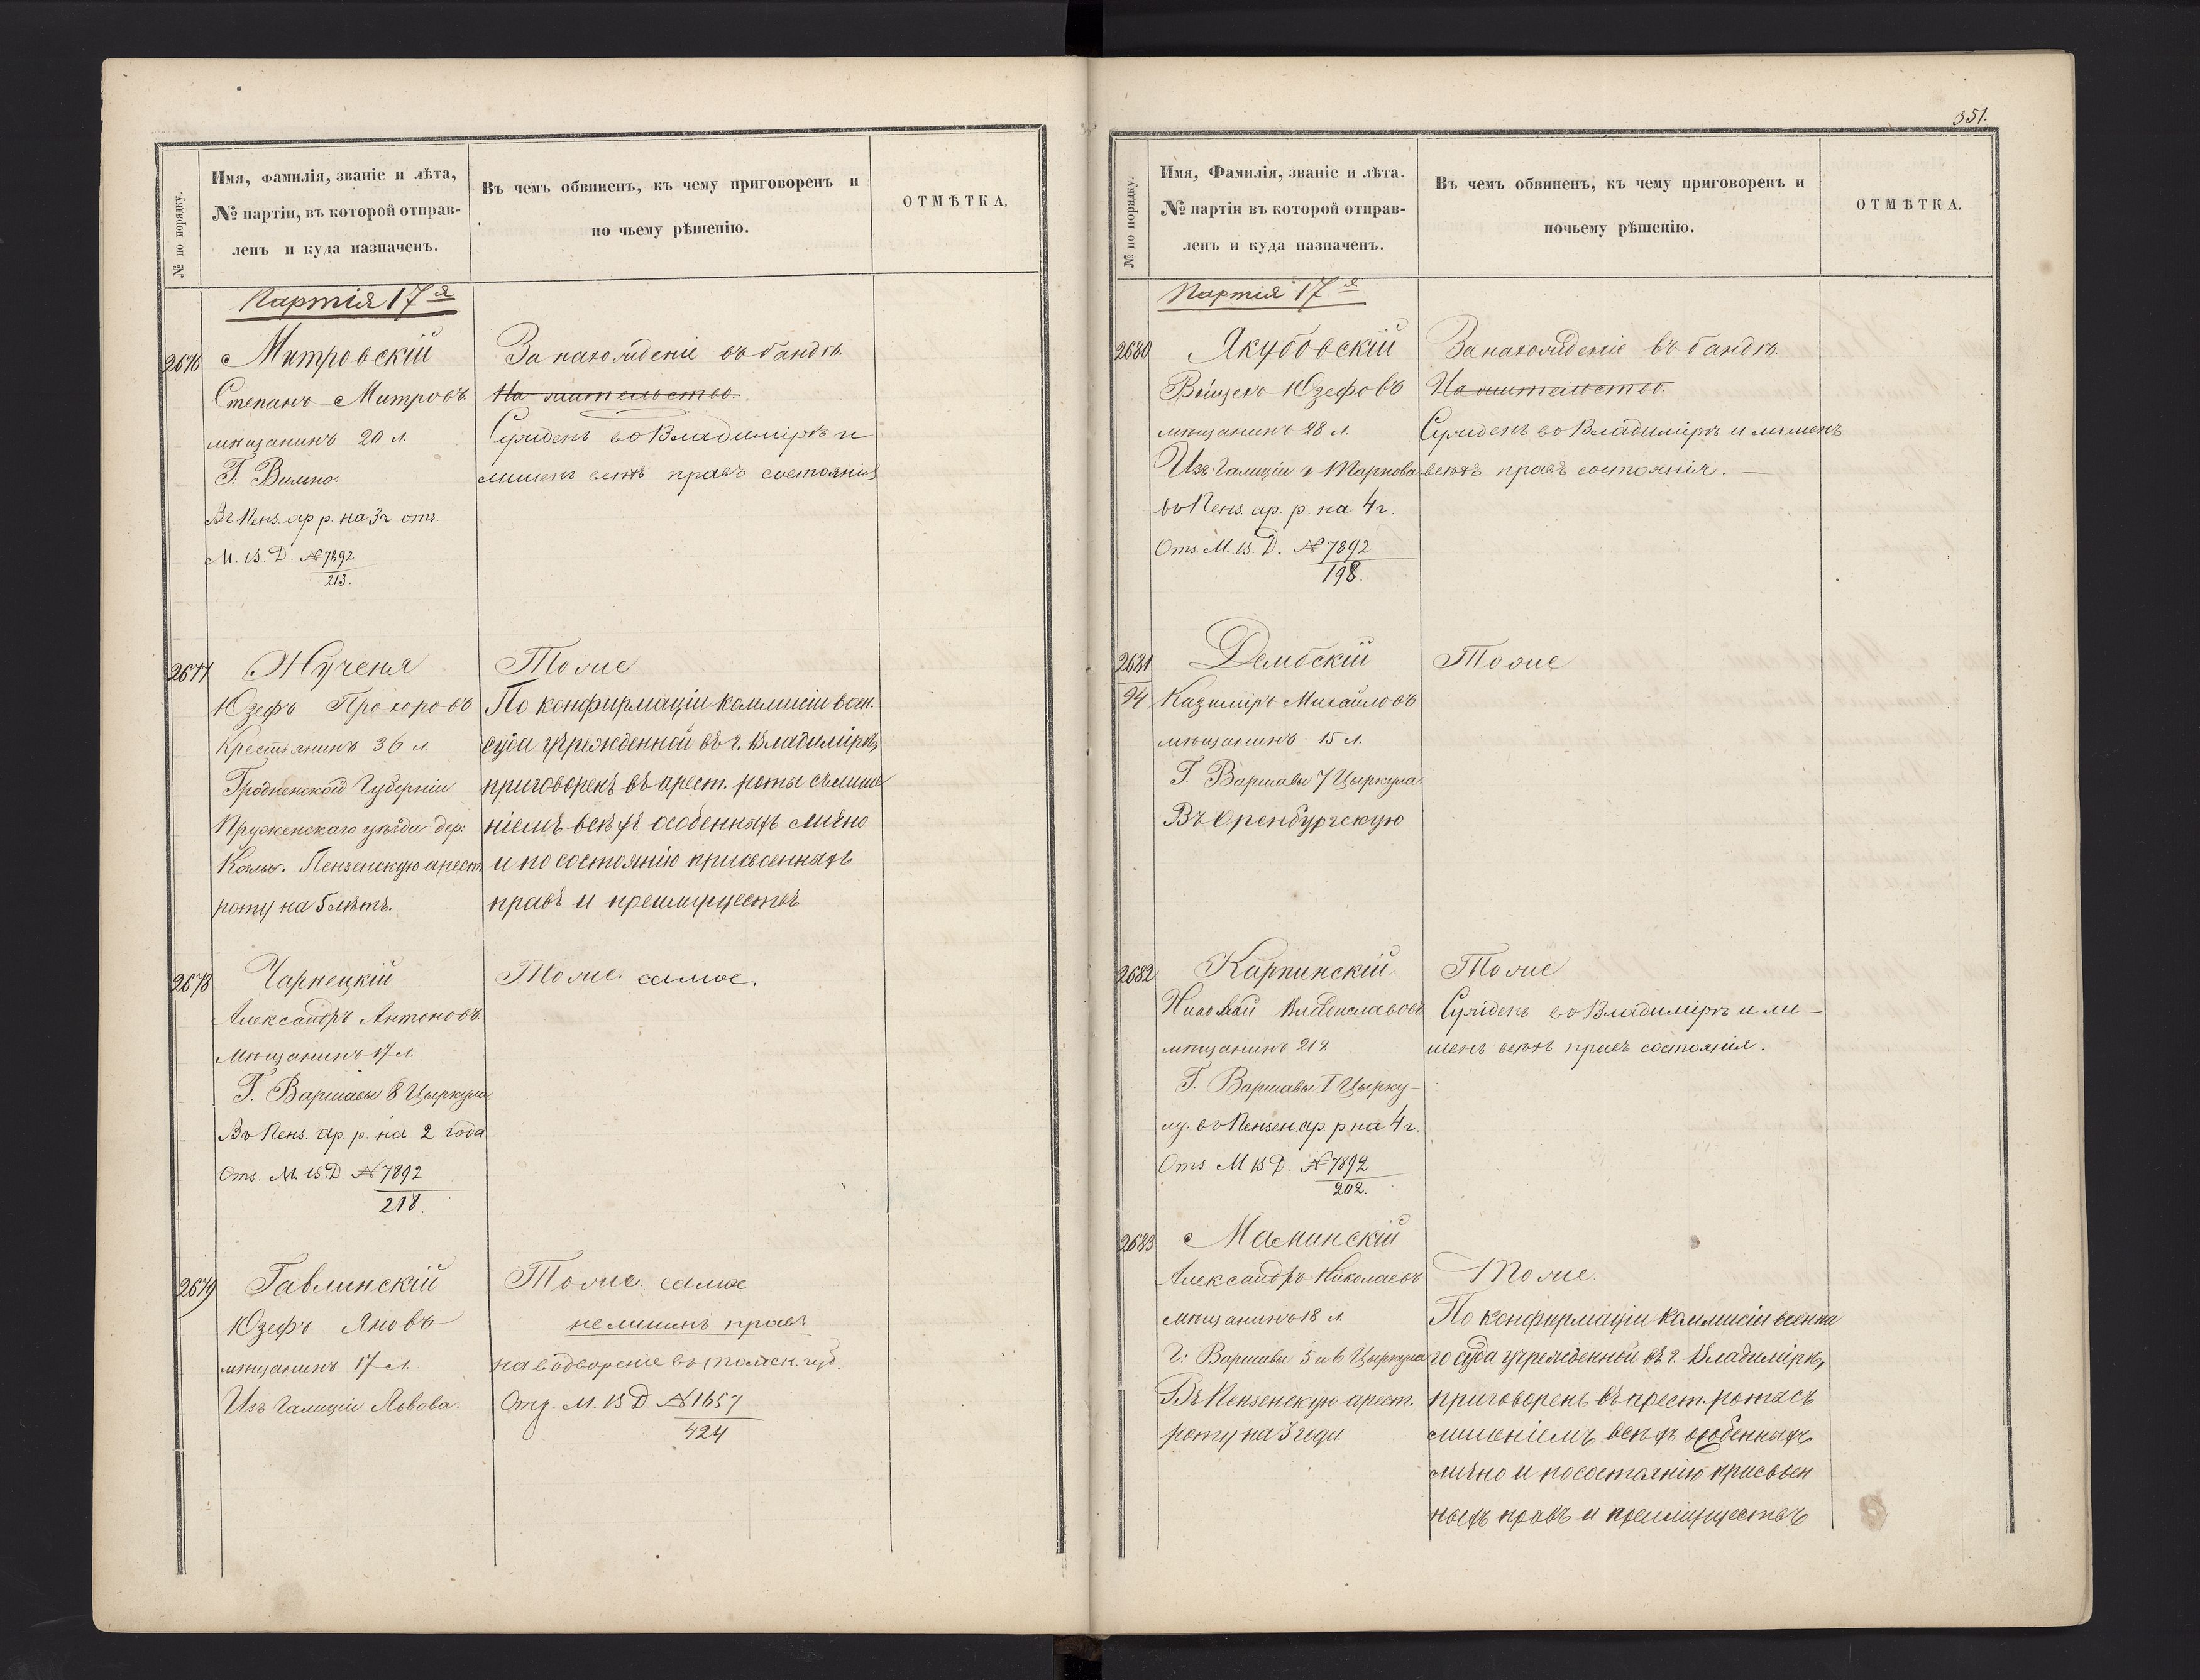 351.
№ по порядку.
Имя, Фамилія, званіе и лѣта,
№ партіи, въ которой отправ-
ленъ и куда назначенъ.
Въ чемъ обвиненъ, къ чему приговоренъ и
по чьему рѣшенію.
ОТМѢТКА.
Партія 17я
2676
Митровскій
Степанъ Митровъ
мѣщанинъ 20 л.
Г. Вильно.
Въ Пенз. ар. р. на 3 г. отз.
М. В. Д. № 7892
213.
За нахожденіе въ бандѣ.
На жительство.
Сужденъ во Владимірѣ и
лишенъ всѣхъ правъ состоянія
2677
Жученя
Юзефъ Прохоровъ
Крестьянинъ 36 л.
Гродненской Губерніи
Пружескаго уѣзда дер:
Пензенскую арест.
роту на 5 лѣтъ.
Тоже.
По конфирмаціи коммисіи воен.
суда учрежденной въ г. Владимірѣ,
приговоренъ въ арест. роты с лише
ніемъ всѣхъ особенныхъ лично
и по состоянію присвоенныхъ
правъ и преимуществъ
2678
Чарнецкій
Александръ Антоновъ.
Мѣщанинъ 17 л.
Г. Варшавы 8 Цыркула
Въ Пенз. ар. р. на 2 года
Отз. М. В. Д. № 7892
218.
Тоже самое.
2679
Гавлинскій
Юзефъ Яновъ
мѣщанинъ 17 л.
Изъ Галиціи Львова.
Тоже самое
не лишенъ правъ
на водвореніе въ Томск. губ.
Отз. М. В Д № 1657
424
№ по порядку.
Имя, Фамилія, званіе и лѣта.
№ партіи въ которой отправ-
ленъ и куда назначенъ.
Въ чемъ обвиненъ, къ чему приговоренъ и
почьему рѣшенію.
ОТМѢТКА.
Партія 17я
2680
Якубовскій
Войцехъ Юзефовъ
мѣщанинъ 28 л.
Изъ Галиціи г Тарнова
въ Пенз. ар. р. на 4 г.
Отз. М. В. Д. № 7892
198.
За нахожденіе въ бандѣ.
На жительство.
Сужденъ во Владимірѣ и лишенъ
всѣхъ правъ состоянія. —
2681
94
Дембскій
Казиміръ Михайловъ
мѣщанинъ 15 л.
Г. Варшавы 7 Цыркула
Въ Оренбургскую
Тоже
2682
Карпинскій
Николай Владиславовъ
мѣщанинъ 21 г
Г. Варшавы I Цырку-
лу. въ Пензен. ар. р на 4 г.
Отз. М В Д. № 7892
202.
Тоже
Сужденъ во Владимірѣ и ли-
шенъ всѣхъ правъ состоянія.
2683
Маминскій
Александръ Николаевъ
мѣщанинъ 18 л.
г: Варшавы 5 и 6 Цыркула
Въ Пензенскую арест.
роту на 3 года.
Тоже.
По конфирмаціи коммисіи военна
го суда учрежденной въ г. Владимірѣ,
приговоренъ въ арест. роты съ
лишеніемъ всѣхъ особенныхъ
лично и посостоянію присвоен
ныхъ правъ и преимуществъ